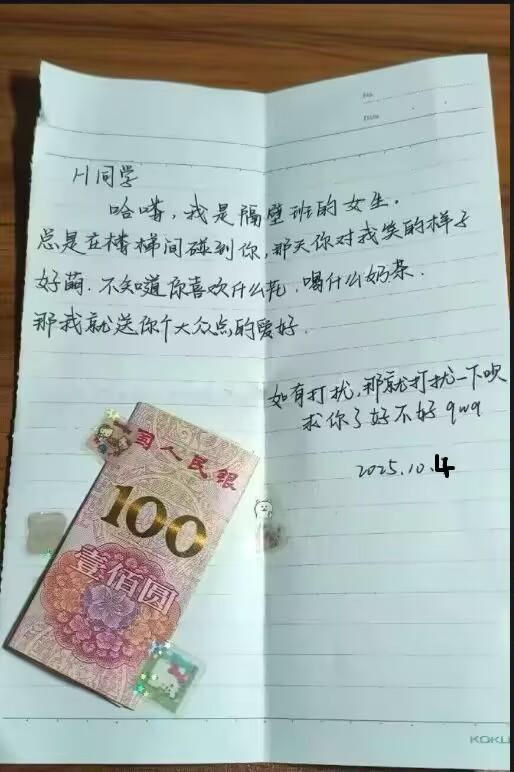 No.
Date
H同学
哈喽,我是隔壁班的女生.
总是在楼梯间碰到你,那天你对我笑的样子
好萌.不知道你喜欢什么花,喝什么奶茶.
那我就送你个大众点的爱好.
如有打扰,那就打扰一下呗
求你了好不好qwq
2025.10.4
国人民银
100
壹佰圆
KOKU